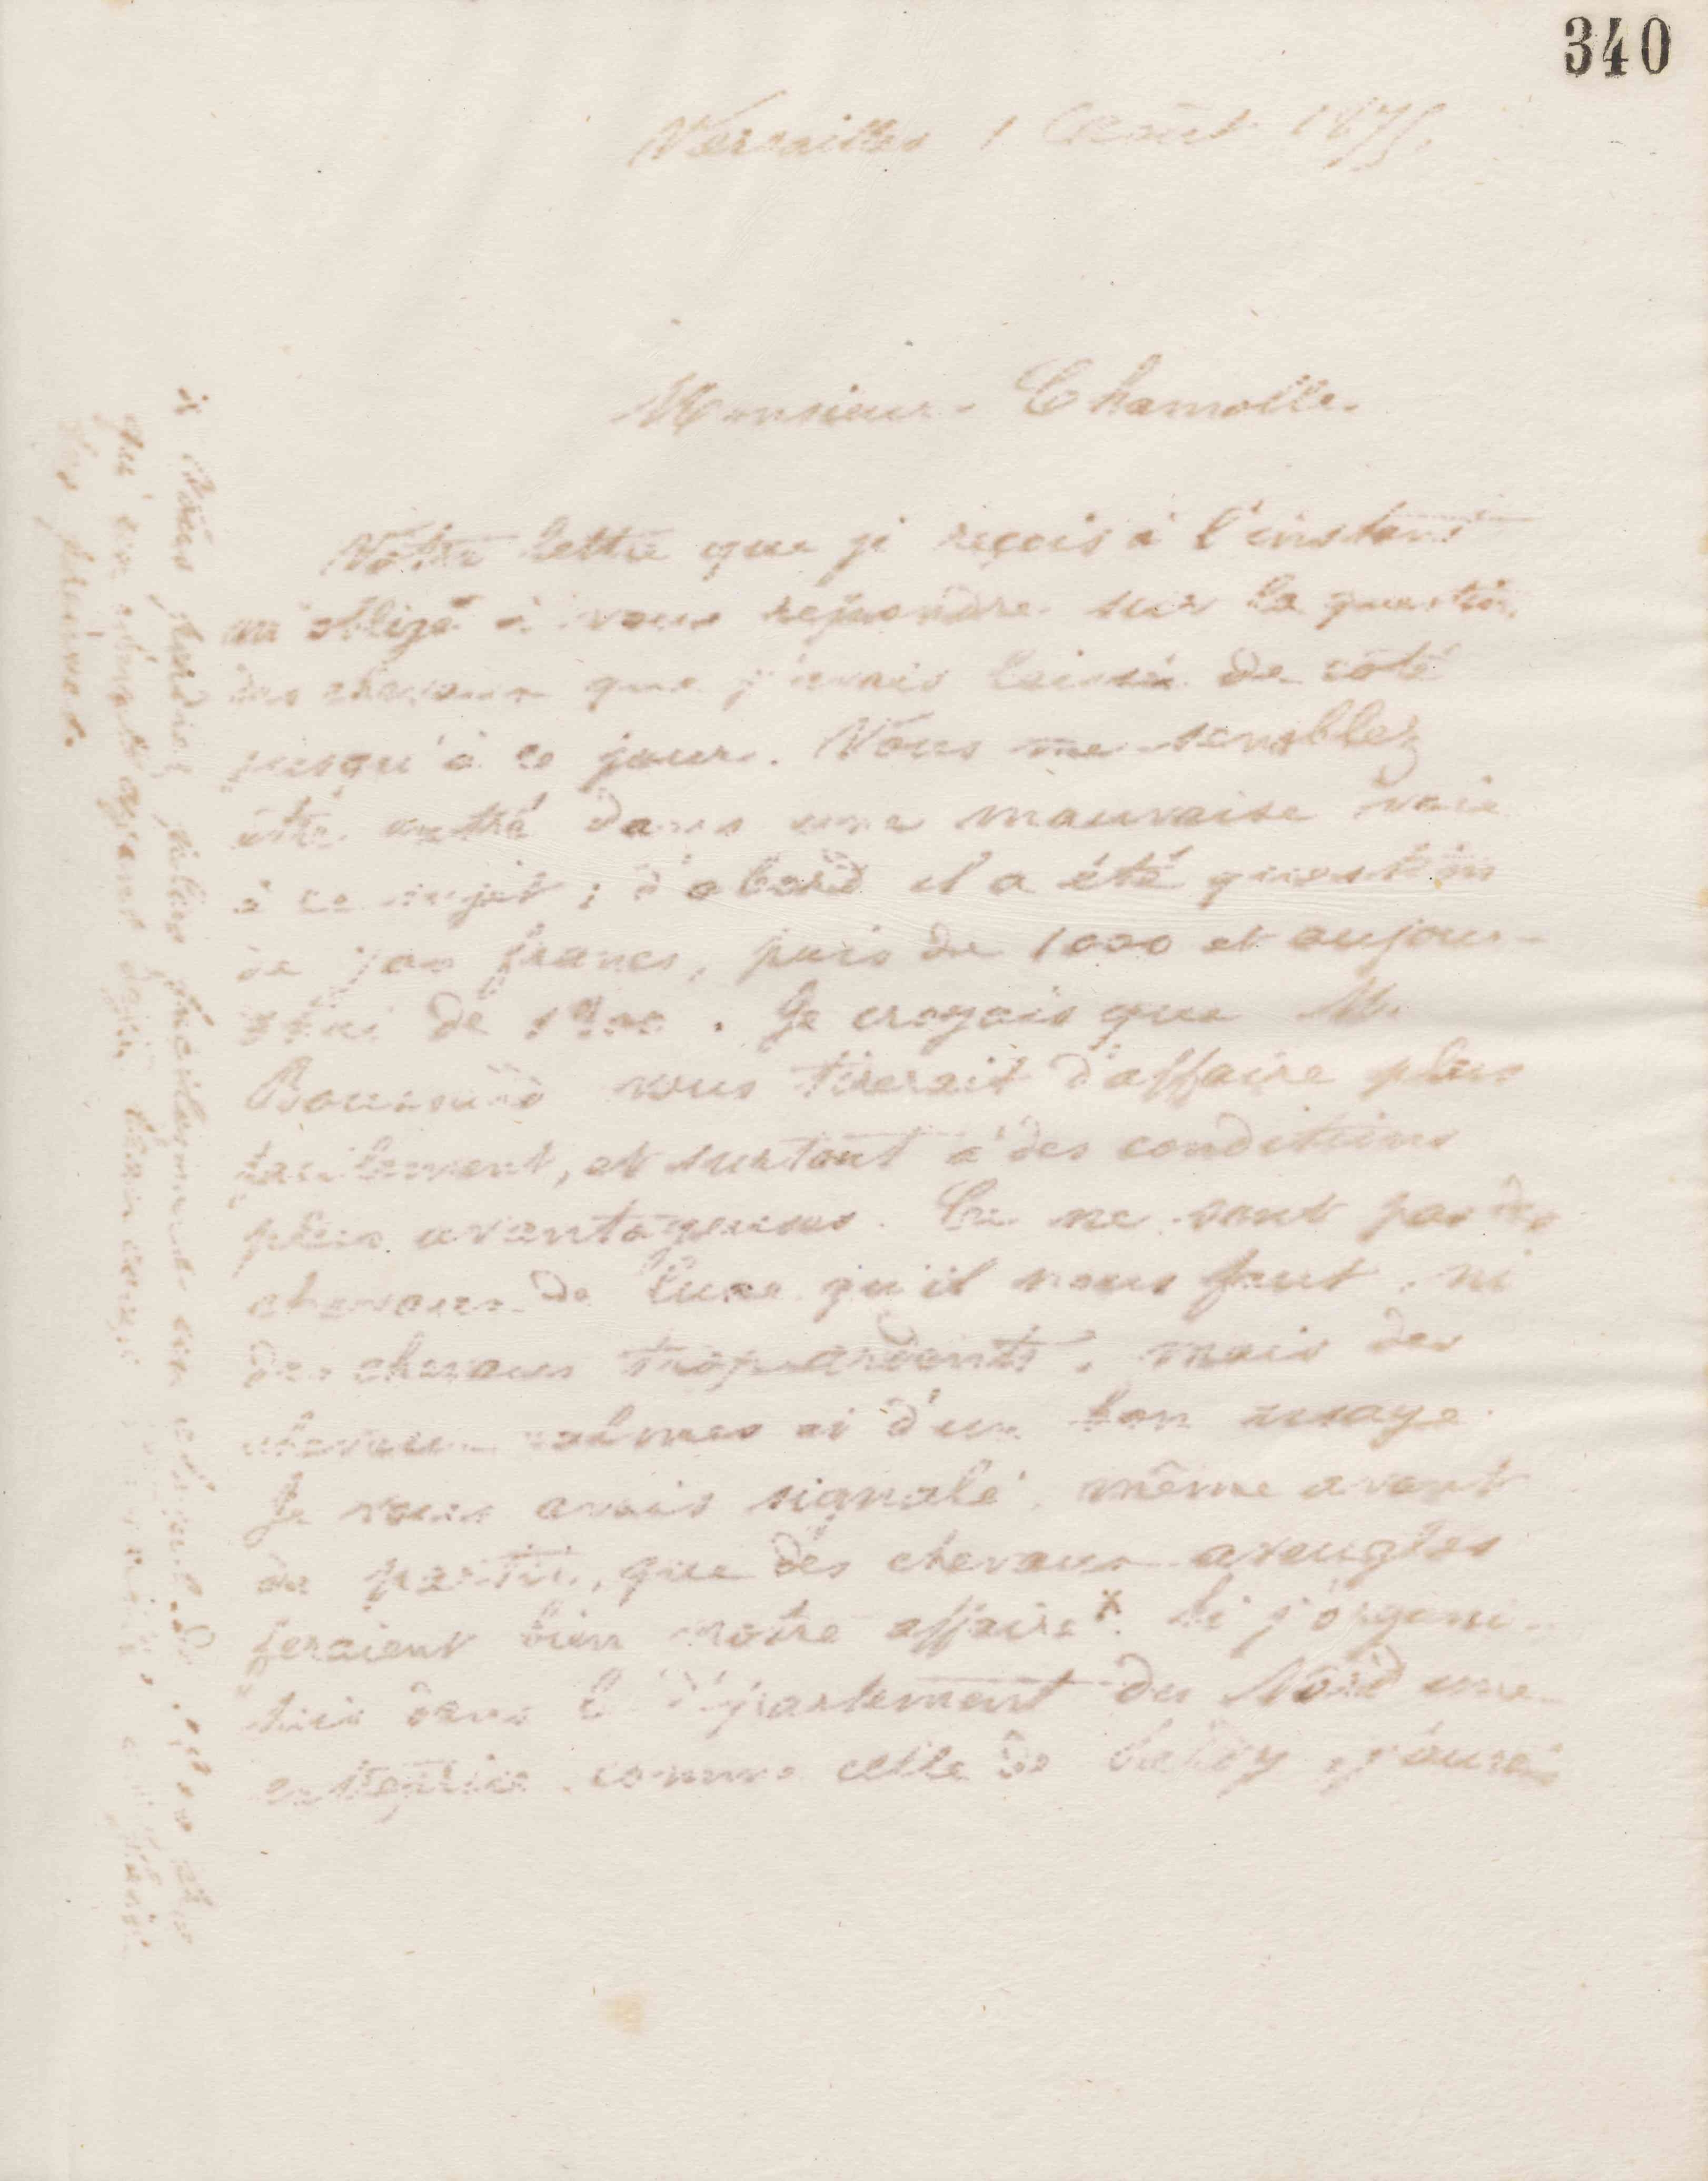 340
Versailles 1 Août 1875.
Monsieur Chamolle.
Votre lettre que je reçois à l'instant
m'oblige à vous repondre sur la question
des chevaux que j'avais laissée de côté
jusqu'à ce jour. Vous me semblez
être entré dans une mauvaise voie
à ce sujet ; d'abord il a été question
de francs, puis de 1000 et aujour-
d'hui de . Je croyais que M.
vous tirerait d'affaire plus
facilement, et surtout à des conditions
plus avantageuses. Ce ne sont pas des
chevaux de luxe qu'il nous faut, ni
des chevaux trop ardents, mais des
chevaux calmes et d'un bon usage.
Je vous avais signalé, même avant
de partir, que des chevaux aveugles
feraient bien notre affaire x. Si j'organi-
sais dans le département du Nord une
entreprise comme celle de j'aurais
x Vous perdiez plus facilement un
qu'un ayant